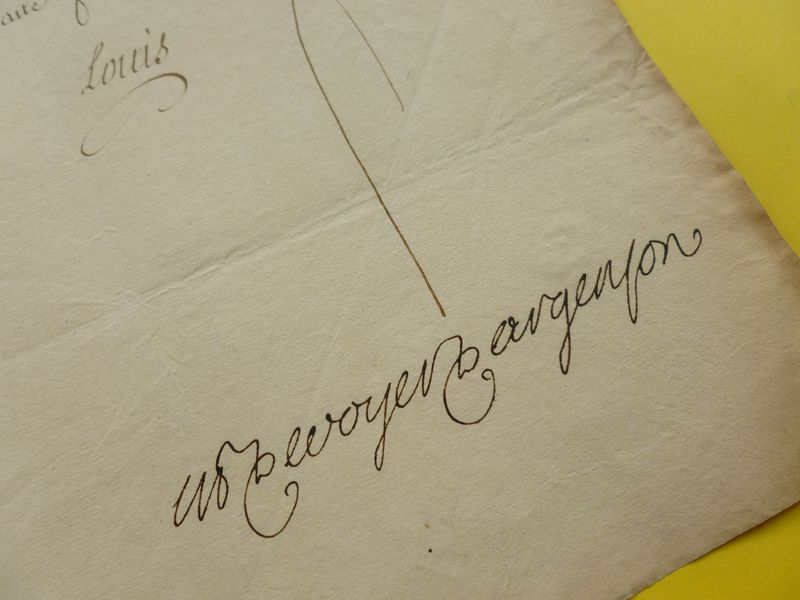 Louis
M de voyer d argenson